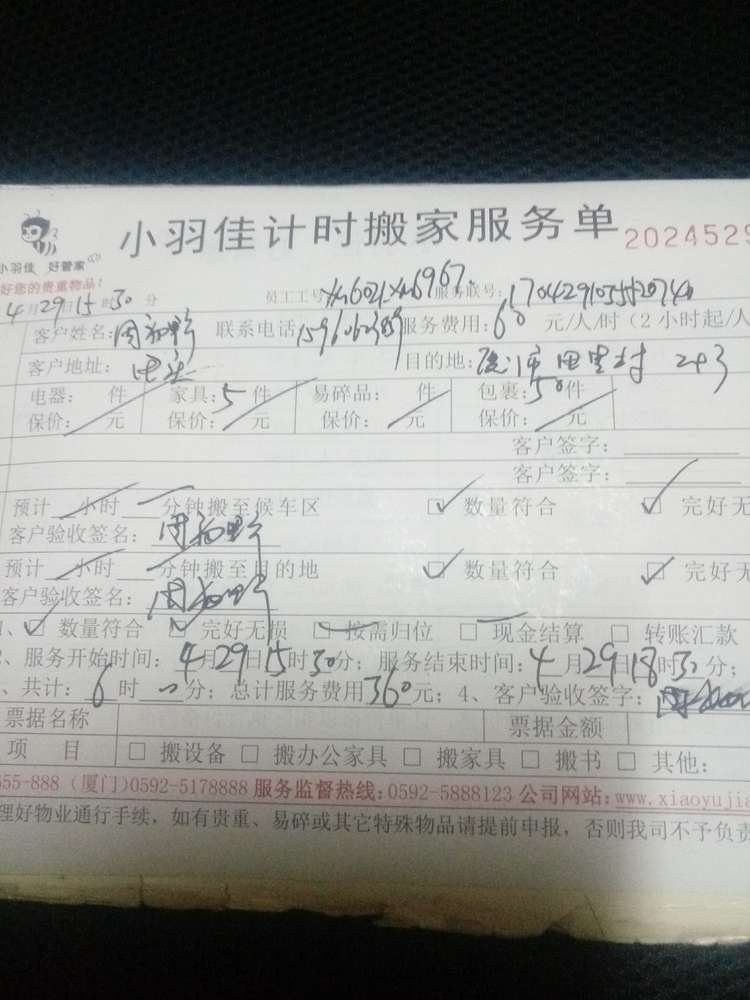 小羽佳计时搬家服务单 2024529
小羽佳 好管家
好您的贵重物品!
4月29日15时30分 员工工号 xm6021xm6967 服务联号:
客户姓名: 联系电话 服务费用:60元/人/时(2小时起/人
客户地址: 目的地: 243
电器: 件 家具:5件 易碎品: 件 包裹:50件
保价: 元 保价: 元 保价: 元 保价: 元
客户签字:
客户签字:
预计 小时 分钟搬至候车区 ☑ 数量符合 ☑ 完好无
客户验收签名:
预计 小时 分钟搬至目的地 ☑ 数量符合 ☑ 完好无
客户验收签名:
1、☑ 数量符合 ☑ 完好无损 □ 按需归位 □ 现金结算 □ 转账汇款
、服务开始时间:4月29日15时30分;服务结束时间:4月29日18时30分;
、共计:6时 分;总计服务费用360元;4、客户验收签字:
票据名称 票据金额
项 目 □ 搬设备 □ 搬办公家具 □ 搬家具 □ 搬书 □ 其他:
555-888(厦门)0592-5178888 服务监督热线:0592-5888123 公司网站:www.xiaoyujia
理好物业通行手续,如有贵重、易碎或其它特殊物品请提前申报,否则我司不予负责